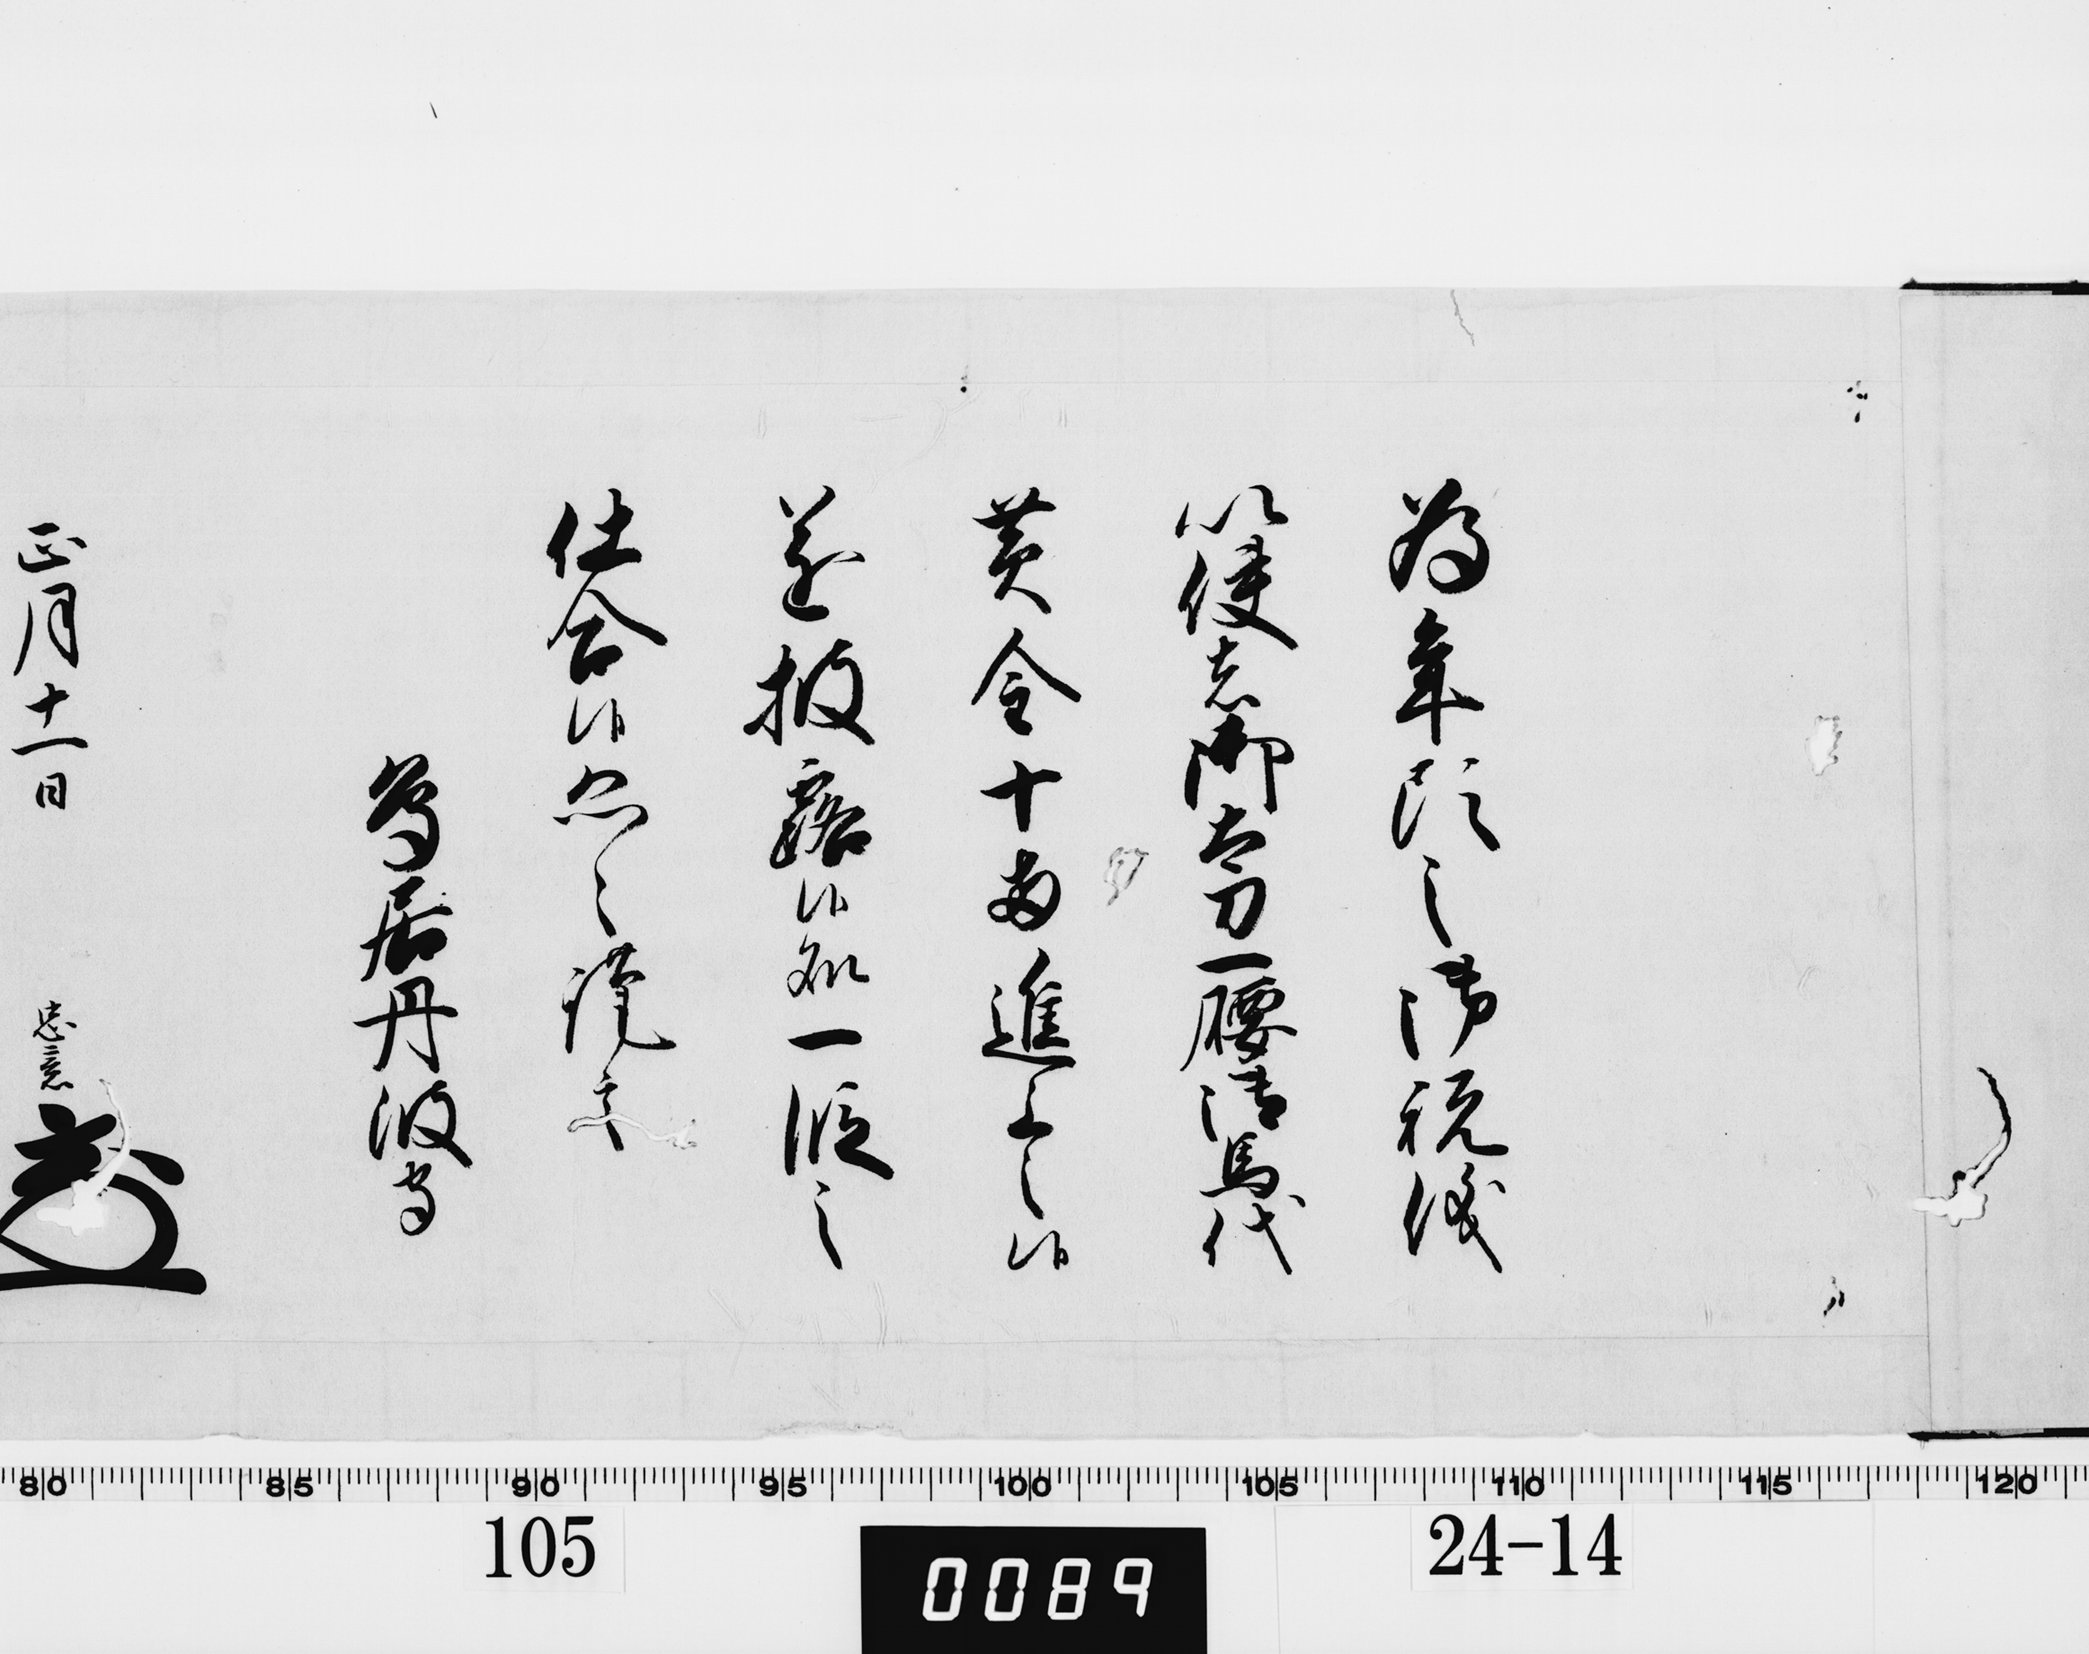 為年頭之御祝儀
以使者御太刀一腰御馬代
黄金十両進上之候
遂披露候処一段之
仕合候恐々謹言
鳥居丹波守
正月十一日 忠意
80 85 90 95 100 105 110 115 120
105 0089 24-14